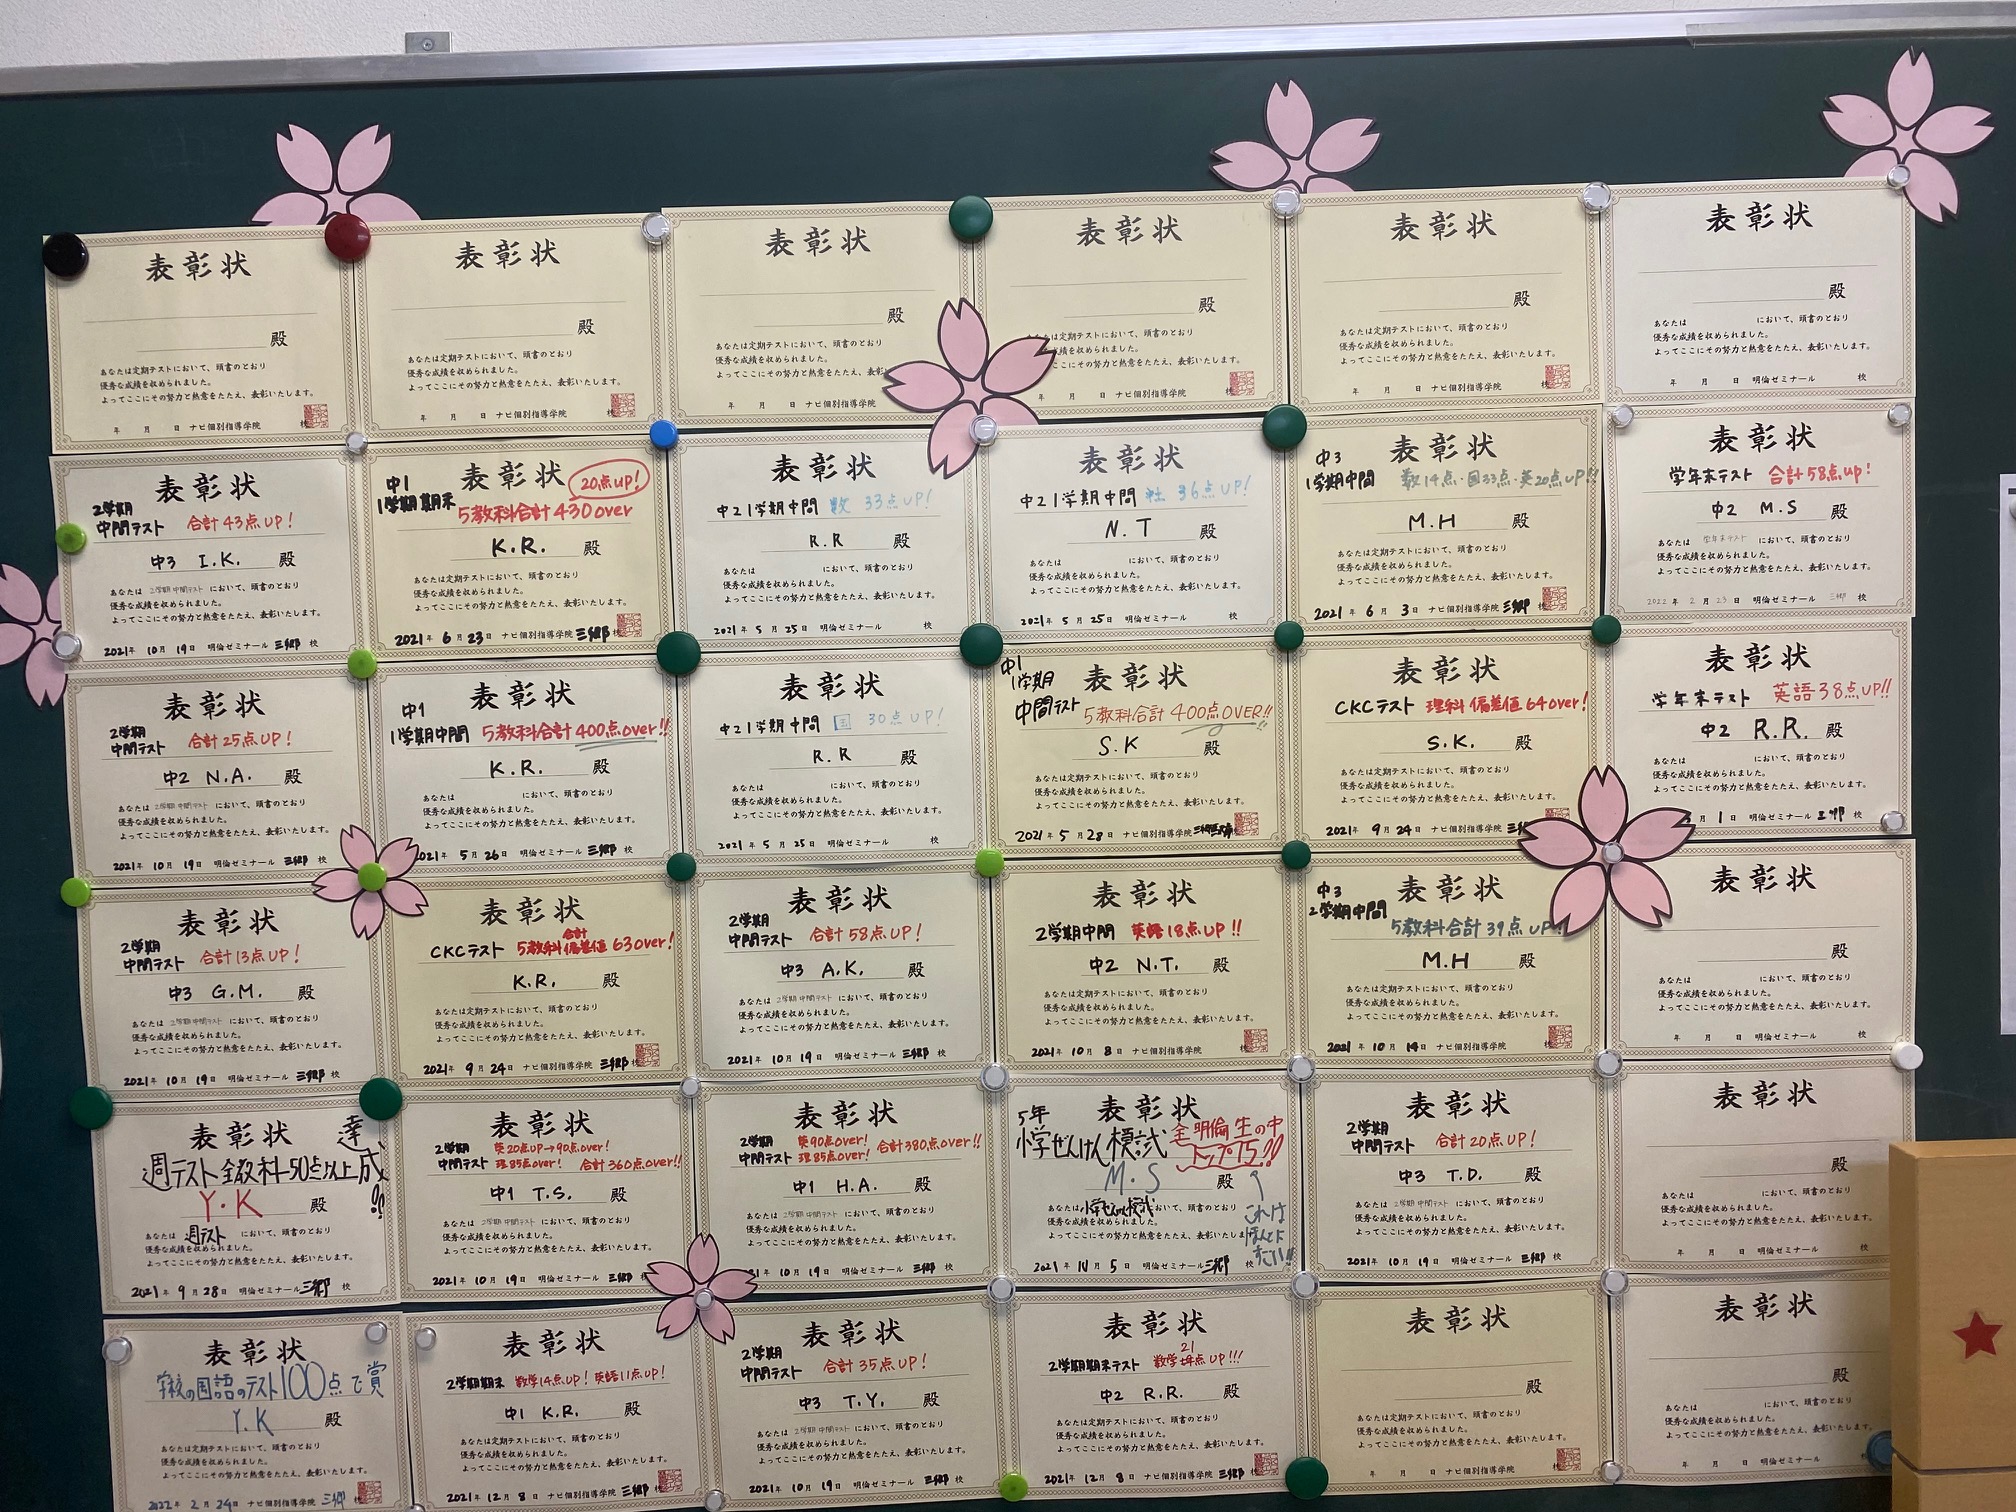 表彰状
殿
あなたは定期テストにおいて、頭書のとおり
優秀な成績を収められました。
よってここにその努力と熱意をたたえ、表彰いたします。
年 月 日 ナビ個別指導学院 校
表彰状
殿
あなたは定期テストにおいて、頭書のとおり
優秀な成績を収められました。
よってここにその努力と熱意をたたえ、表彰いたします。
年 月 日 ナビ個別指導学院 校
表彰状
殿
あなたは定期テストにおいて、頭書のとおり
優秀な成績を収められました。
よってここにその努力と熱意をたたえ、
年 月 日 ナビ個別指導学院
表彰状
殿
は定期テストにおいて、頭書のとおり
成績を収められました。
ここにその努力と熱意をたたえ、表彰いたします。
年 月 日 ナビ個別指導学院 校
表彰状
殿
あなたは定期テストにおいて、頭書のとおり
優秀な成績を収められました。
よってここにその努力と熱意をたたえ、表彰いたします。
年 月 日 ナビ個別指導学院 校
表彰状
殿
あなたは において、頭書のとおり
優秀な成績を収められました。
よってここにその努力と熱意をたたえ、表彰いたします。
年 月 日 明倫ゼミナール 校
表彰状
2学期
中間テスト 合計43点UP!
中3 I.K. 殿
あなたは 2学期中間テスト において、頭書のとおり
優秀な成績を収められました。
よってここにその努力と熱意をたたえ、表彰いたします。
2021年 10月 19日 明倫ゼミナール 三郷 校
中1 表彰状 20点UP!
1学期期末 5教科合計430over
K.R. 殿
あなたは定期テストにおいて、頭書のとおり
優秀な成績を収められました。
よってここにその努力と熱意をたたえ、表彰いたします。
2021年 6月 23日 ナビ個別指導学院 三郷 校
表彰状
中2 1学期中間 数 33点UP!
R.R 殿
あなたは において、頭書のとおり
優秀な成績を収められました。
よってここにその努力と熱意をたたえ、表彰いたします。
2021年 5月 25日 明倫ゼミナール 校
表彰状
中2 1学期中間 社 36点UP!
N.T 殿
あなたは において、頭書のとおり
優秀な成績を収められました。
よってここにその努力と熱意をたたえ、表彰いたします。
2021年 5月 25日 明倫ゼミナール 校
中3 表彰状
1学期中間 数14点・国33点・英20点UP!!
M.H 殿
あなたは定期テストにおいて、頭書のとおり
優秀な成績を収められました。
よってここにその努力と熱意をたたえ、表彰いたします。
2021年 6月 3日 ナビ個別指導学院 三郷 校
表彰状
学年末テスト 合計58点up!
中2 M.S 殿
あなたは 学年末テスト において、頭書のとおり
優秀な成績を収められました。
よってここにその努力と熱意をたたえ、表彰いたします。
2022年 2月 23日 明倫ゼミナール 三郷 校
表彰状
2学期
中間テスト 合計25点UP!
中2 N.A. 殿
あなたは 2学期中間テスト において、頭書のとおり
優秀な成績を収められました。
よってここにその努力と熱意をたたえ、表彰いたします。
2021年 10月 19日 明倫ゼミナール 三郷 校
中1 表彰状
1学期中間 5教科合計400点over!!
K.R. 殿
あなたは において、頭書のとおり
優秀な成績を収められました。
よってここにその努力と熱意をたたえ、表彰いたします。
2021年 5月 26日 明倫ゼミナール 三郷 校
表彰状
中2 1学期中間 国 30点UP!
R.R 殿
あなたは において、頭書のとおり
優秀な成績を収められました。
よってここにその努力と熱意をたたえ、表彰いたします。
2021年 5月 25日 明倫ゼミナール 校
中1 表彰状
1学期
中間テスト 5教科合計400点OVER!!
S.K 殿
あなたは定期テストにおいて、頭書のとおり
優秀な成績を収められました。
よってここにその努力と熱意をたたえ、表彰いたします。
2021年 5月 28日 ナビ個別指導学院
表彰状
CKCテスト 理科偏差値64over!
S.K. 殿
あなたは定期テストにおいて、頭書のとおり
優秀な成績を収められました。
よってここにその努力と熱意をたたえ、表彰いた
2021年 9月 24日 ナビ個別指導学院
表彰状
学年末テスト 英語38点UP!!
中2 R.R. 殿
あなたは において、頭書のとおり
優秀な成績を収められました。
よってここにその努力と熱意をたたえ、表彰いたします。
月 1日 明倫ゼミナール 三郷 校
表彰状
2学期
中間テスト 合計13点UP!
中3 G.M. 殿
あなたは 2学期中間テスト において、頭書のとおり
優秀な成績を収められました。
よってここにその努力と熱意をたたえ、表彰いたします。
2021年 10月 19日 明倫ゼミナール 三郷 校
表彰状
合計
CKCテスト 5教科偏差値63over!
K.R. 殿
あなたは定期テストにおいて、頭書のとおり
優秀な成績を収められました。
よってここにその努力と熱意をたたえ、表彰いたします。
2021年 9月 24日 ナビ個別指導学院 三郷 校
表彰状
2学期
中間テスト 合計58点UP!
中3 A.K. 殿
あなたは 2学期中間テスト において、頭書のとおり
優秀な成績を収められました。
よってここにその努力と熱意をたたえ、表彰いたします。
2021年 10月 19日 明倫ゼミナール 三郷 校
表彰状
2学期中間 英語18点UP!!
中2 N.T. 殿
あなたは定期テストにおいて、頭書のとおり
優秀な成績を収められました。
よってここにその努力と熱意をたたえ、表彰いたします。
2021年 10月 8日 ナビ個別指導学院 校
中3 表彰状
2学期中間
5教科合計39点UP!!
M.H 殿
あなたは定期テストにおいて、頭書のとおり
優秀な成績を収められました。
よってここにその努力と熱意をたたえ、表彰いたします。
2021年 10月 19日 ナビ個別指導学院 校
表彰状
殿
あなたは において、頭書のとおり
優秀な成績を収められました。
よってここにその努力と熱意をたたえ、表彰いたします。
年 月 日 明倫ゼミナール 校
表彰状
週テスト全教科50点以上達成!!
Y.K 殿
あなたは 週テスト において、頭書のとおり
優秀な成績を収められました。
よってここにその努力と熱意をたたえ、表彰いたします。
2021年 9月 28日 明倫ゼミナール 三郷 校
表彰状
2学期 英20点UP→90点over!
中間テスト 理85点over! 合計360点over!!
中1 T.S. 殿
あなたは 2学期中間テスト において、頭書のとおり
優秀な成績を収められました。
よってここにその努力と熱意をたたえ、表彰いたします。
2021年 10月 19日 明倫ゼミナール 三郷 校
表彰状
2学期 英90点over! 合計380点over!!
中間テスト 理85点over!
中1 H.A. 殿
あなたは 2学期中間テスト において、頭書のとおり
優秀な成績を収められました。
よってここにその努力と熱意をたたえ、表彰いたします。
10月 19日 明倫ゼミナール 三郷 校
5年 表彰状
小学ぜんけん模試 全明倫生の中
トップ15!!
M.S 殿
あなたは 小学ぜんけん模試 において、頭書のとおり
優秀な成績を収められました。
よってここにその努力と熱意をたたえ、表彰いたします。
これは
ほんとに
すごい!!
2021年 10月 5日 明倫ゼミナール 三郷 校
表彰状
2学期
中間テスト 合計20点UP!
中3 T.D. 殿
あなたは 2学期中間テスト において、頭書のとおり
優秀な成績を収められました。
よってここにその努力と熱意をたたえ、表彰いたします。
2021年 10月 19日 明倫ゼミナール 三郷 校
表彰状
殿
あなたは において、頭書のとおり
優秀な成績を収められました。
よってここにその努力と熱意をたたえ、表彰いたします。
年 月 日 明倫ゼミナール 校
表彰状
学校の国語のテスト100点で賞
Y.K 殿
あなたは定期テストにおいて、頭書のとおり
優秀な成績を収められました。
よってここにその努力と熱意をたたえ、表彰いたします。
2022年 2月 24日 ナビ個別指導学院 三郷 校
表彰状
2学期期末 数学14点UP! 英語11点UP!
中1 K.R. 殿
あなたは定期テストにおいて、頭書のとおり
優秀な成績を収められました。
よってここにその努力と熱意をたたえ、表彰いたします。
2021年 12月 8日 ナビ個別指導学院 三郷 校
表彰状
2学期
中間テスト 合計35点UP!
中3 T.Y. 殿
あなたは 2学期中間テスト において、頭書のとおり
優秀な成績を収められました。
よってここにその努力と熱意をたたえ、表彰いたします。
2021年 10月 19日 明倫ゼミナール 三郷 校
表彰状
21
2学期期末テスト 数学 点UP!!!
中2 R.R. 殿
あなたは定期テストにおいて、頭書のとおり
優秀な成績を収められました。
よってここにその努力と熱意をたたえ、表彰いたします。
2021年 12月 8日 ナビ個別指導学院 三郷 校
表彰状
殿
あなたは定期テストにおいて、頭書のとおり
優秀な成績を収められました。
よってここにその努力と熱意をたたえ、表彰いたします。
年 月 日 ナビ個別指導学院 校
表彰状
殿
あなたは において、頭書のとおり
優秀な成績を収められました。
よってここにその努力と熱意をたたえ、表彰いたします。
年 月 日 明倫ゼミナール